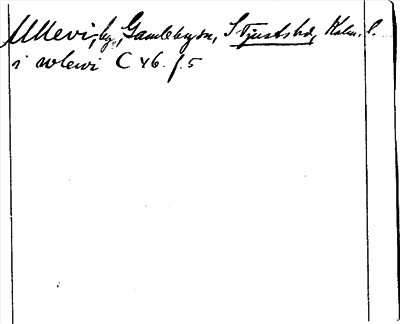 Ullevi, by, Gamleby sn, S Tjusts hd, Kalm. l.
i wlewi C 46. f. 5